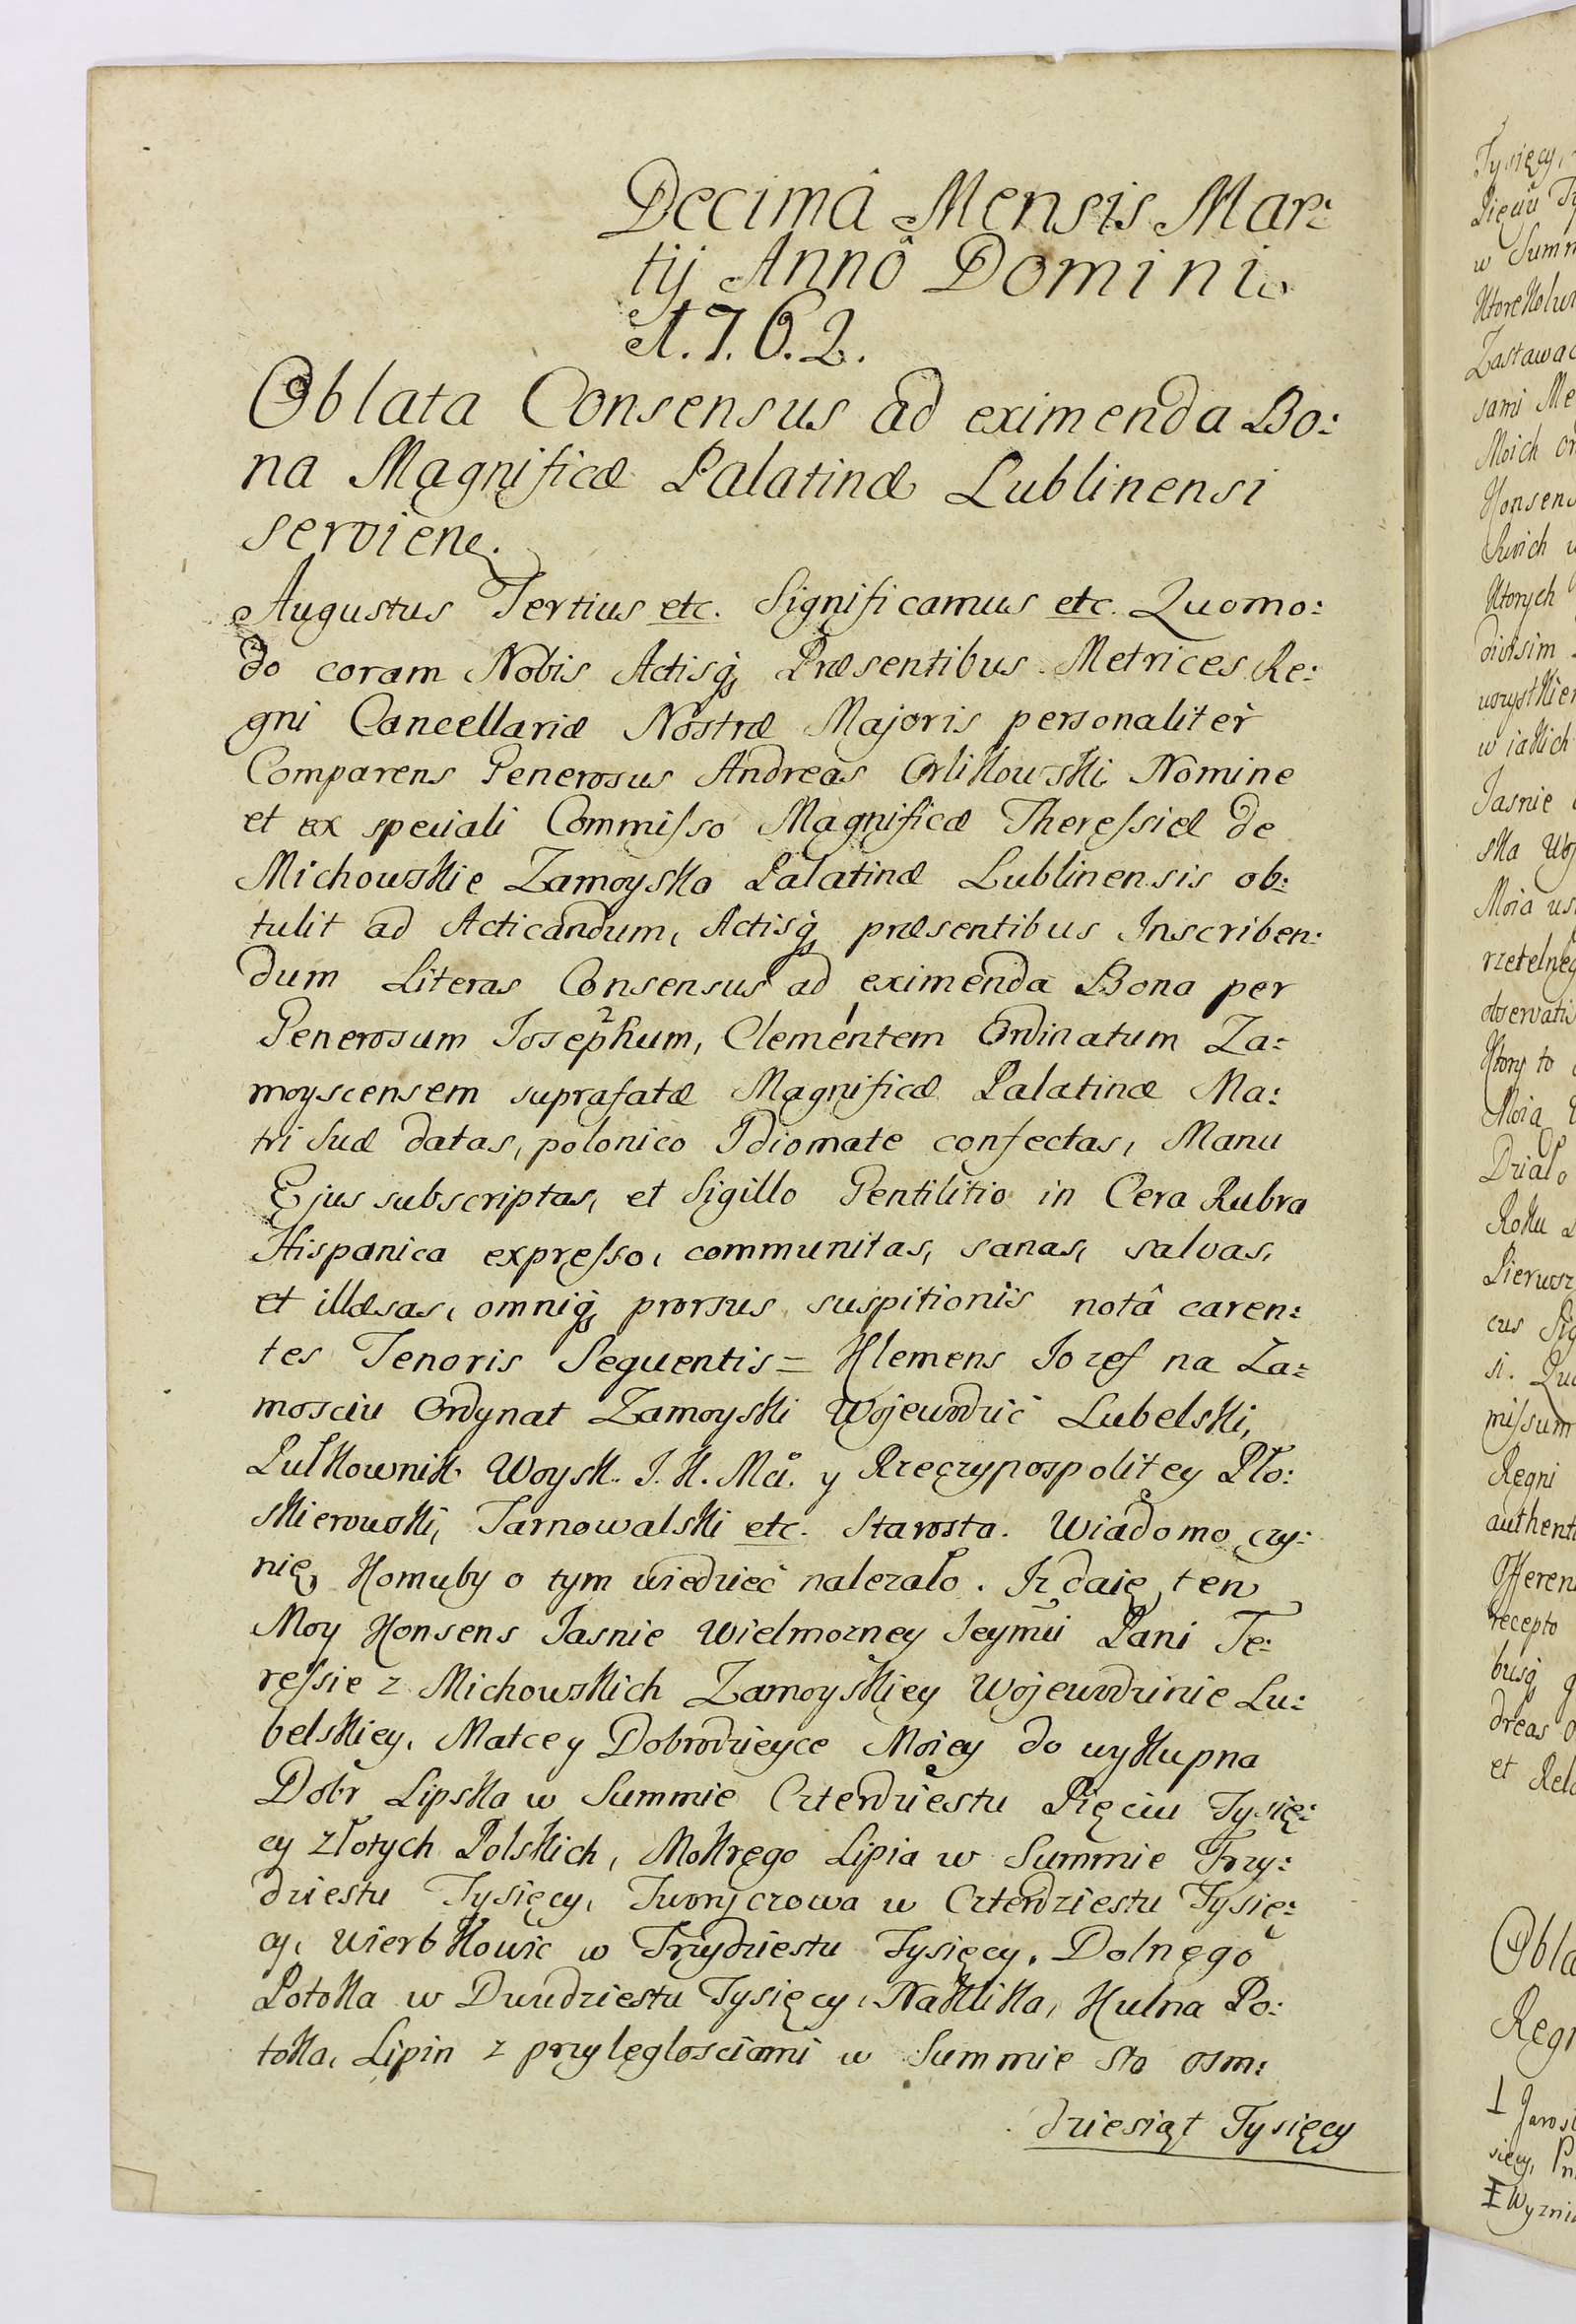 Decimâ Mensis Mar:
tij Annô Domini
1.7.6.2.
Oblata Consensus ad eximenda Bo:
na Magnificæ Palatinæ Lublinensi
servien.
Augustus Tertius etc. Significamus etc. Quomo:
do coram Nobis Actisq Præsentibus Metrices Re:
gni Cancellariæ Nostræ Majoris personaliter
Comparens Generosus Andreas Orlikowski Nomine
et ex speciali Commisso Magnificæ Theressiæ de
Michowskie Zamoyska Palatinæ Lublinensis ob:
tulit ad Acticandum, Actisq præsentibus Inscriben:
dum Literas Consensus ad eximenda Bona per
Generosum Josephum, Clementem Ordinatum Za:
moyscensem suprafatæ Magnificæ Palatinæ Ma:
tri Suæ datas, polonico Idiomate confectas, Manu
Ejus subscriptas, et Sigillo Gentilitio in Cera Rubra
Hispanica expresso, communitas, sanas, salvas,
et illæsas, omniq prorsus suspitionis notâ caren:
tes Tenoris Sequentis = Klemens Jozef na Za:
mosciu Ordynat Zamoyski Wojewodzic Lubelski,
Pułkownik Woysk. J. K. Mci. y Rzeczypospolitey Pło:
skierowski, Tarnowalski etc. Starosta. Wiadomo czy:
nię, Komuby o tym wiedzieć nalezało. Iz daię ten
Moy Konsens Jasnie Wielmozney Jeymci Pani Te:
ressie z Michowskich Zamoyskiey Wojewodzinie Lu:
belskiey, Matce y Dobrodzieyce Moiey do wykupna
Dobr Lipska w Summie Czterdziestu Pięciu Tysię:
cy złotych Polskich, Mokrego Lipia w Summie Trzy:
dziestu Tysięcy, Tworyczowa w Czterdziestu Tysię:
cy, Wierbkowic w Trzydziestu Tysięcy. Dolnego
Potoka w Dwudziestu Tysięcy, Naklika, Kulna Po:
toka, Lipin z przyległosciami w Summie Sto osm:
dziesiąt Tysięcy